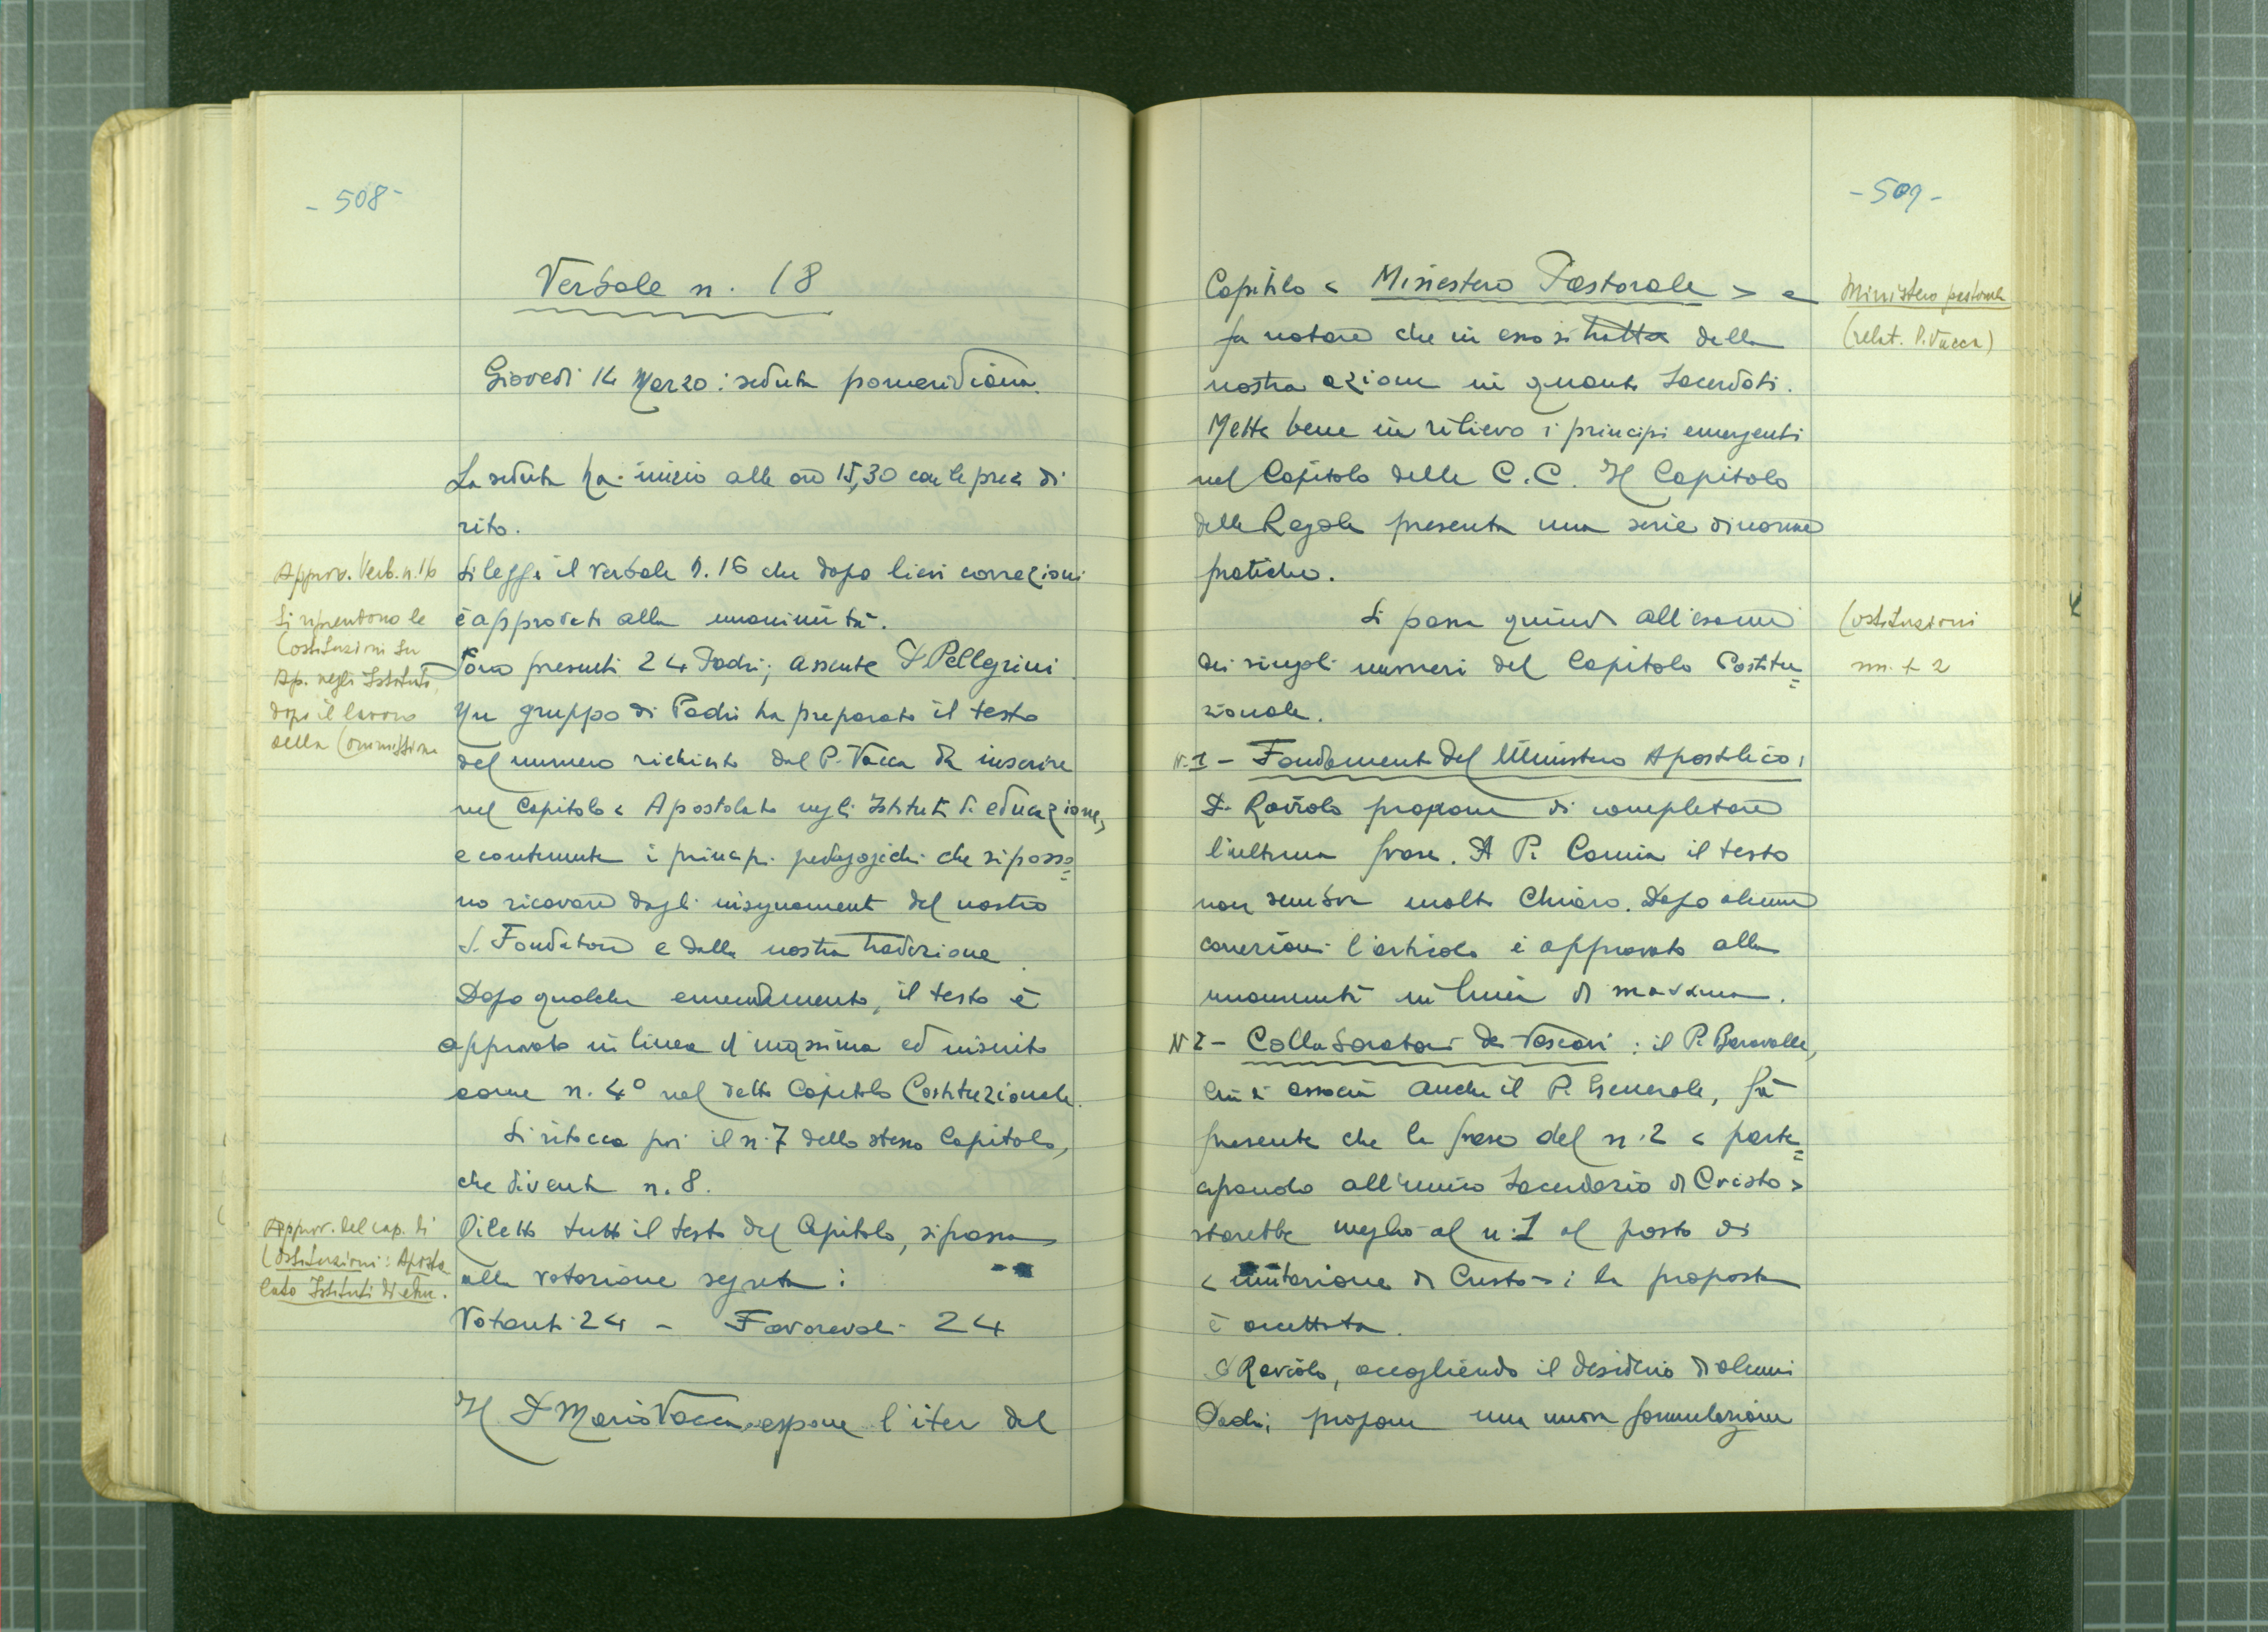 - 508 -
Verbale n. 18
Giovedì 14 Marzo: seduta pomeridiana.
La seduta ha inizio alle ore 15,30 con le preci di
rito.
Approv. Verb. n. 16
Si legge il verbale n. 16 che dopo lievi correzioni
è approvato alla unanimità.
Si riprendono le
Costituzioni su
Ap. negli Istituti,
dopo il lavoro
della Commissione
Sono presenti 24 Padri; assente P. Pellegrini.
Un gruppo di Padri ha preparato il testo
del numero richiesto dal P. Vacca da inserire
nel Capitolo < Apostolato negli Istituti di educazione>
e contenente i principi pedagogici che si posso=
no ricavare dagli insegnamenti del nostro
S. Fondatore e dalla nostra tradizione.
Dopo qualche emendamento, il testo è
approvato in linea di massima ed inserito
come n. 4° nel detto Capitolo Costituzionale.
Si ritocca poi il n. 7 dello stesso Capitolo,
che diventa n. 8.
Approv. del cap. di
Costituzioni: Aposto
lato Istituti di educ.
Riletto tutto il testo del Capitolo, si passa
alla votazione segreta:
Votanti 24 - Favorevoli 24
Il P. Mario Vacca espone l'iter del
- 509 -
Capitolo < Ministero Pastorale > e
Ministero pastorale
(relat. P. Vacca)
fa notare che in esso si tratta della
nostra azione in quanto Sacerdoti.
Mette bene in rilievo i principi emergenti
nel Capitolo delle C.C. Il Capitolo
delle Regole presenta una serie di norme
pratiche.
Si passa quindi all'esame
Costituzioni
nn. 1 2
dei singoli numeri del Capitolo Costitu=
zionale.
N. 1 - Fondamenti del Ministero Apostolico:
P. Raviolo propone di completare
l'ultima frase. A P. Camia il testo
non sembra molto chiaro. Dopo alcune
correzioni l'articolo è approvato alla
unanimità in linea di massima.
N 2 - Collaboratori dei Vescovi: il P. Baravalle,
cui si associa anche il P. Generale, fa
presente che la frase del n. 2 < parte=
cipando all'unico Sacerdozio di Cristo >
starebbe meglio al n. 1 al posto di
< imitazione di Cristo >: la proposta
è accettata.
P. Raviolo, accogliendo il desiderio di alcuni
Padri, propone una nuova formulazione